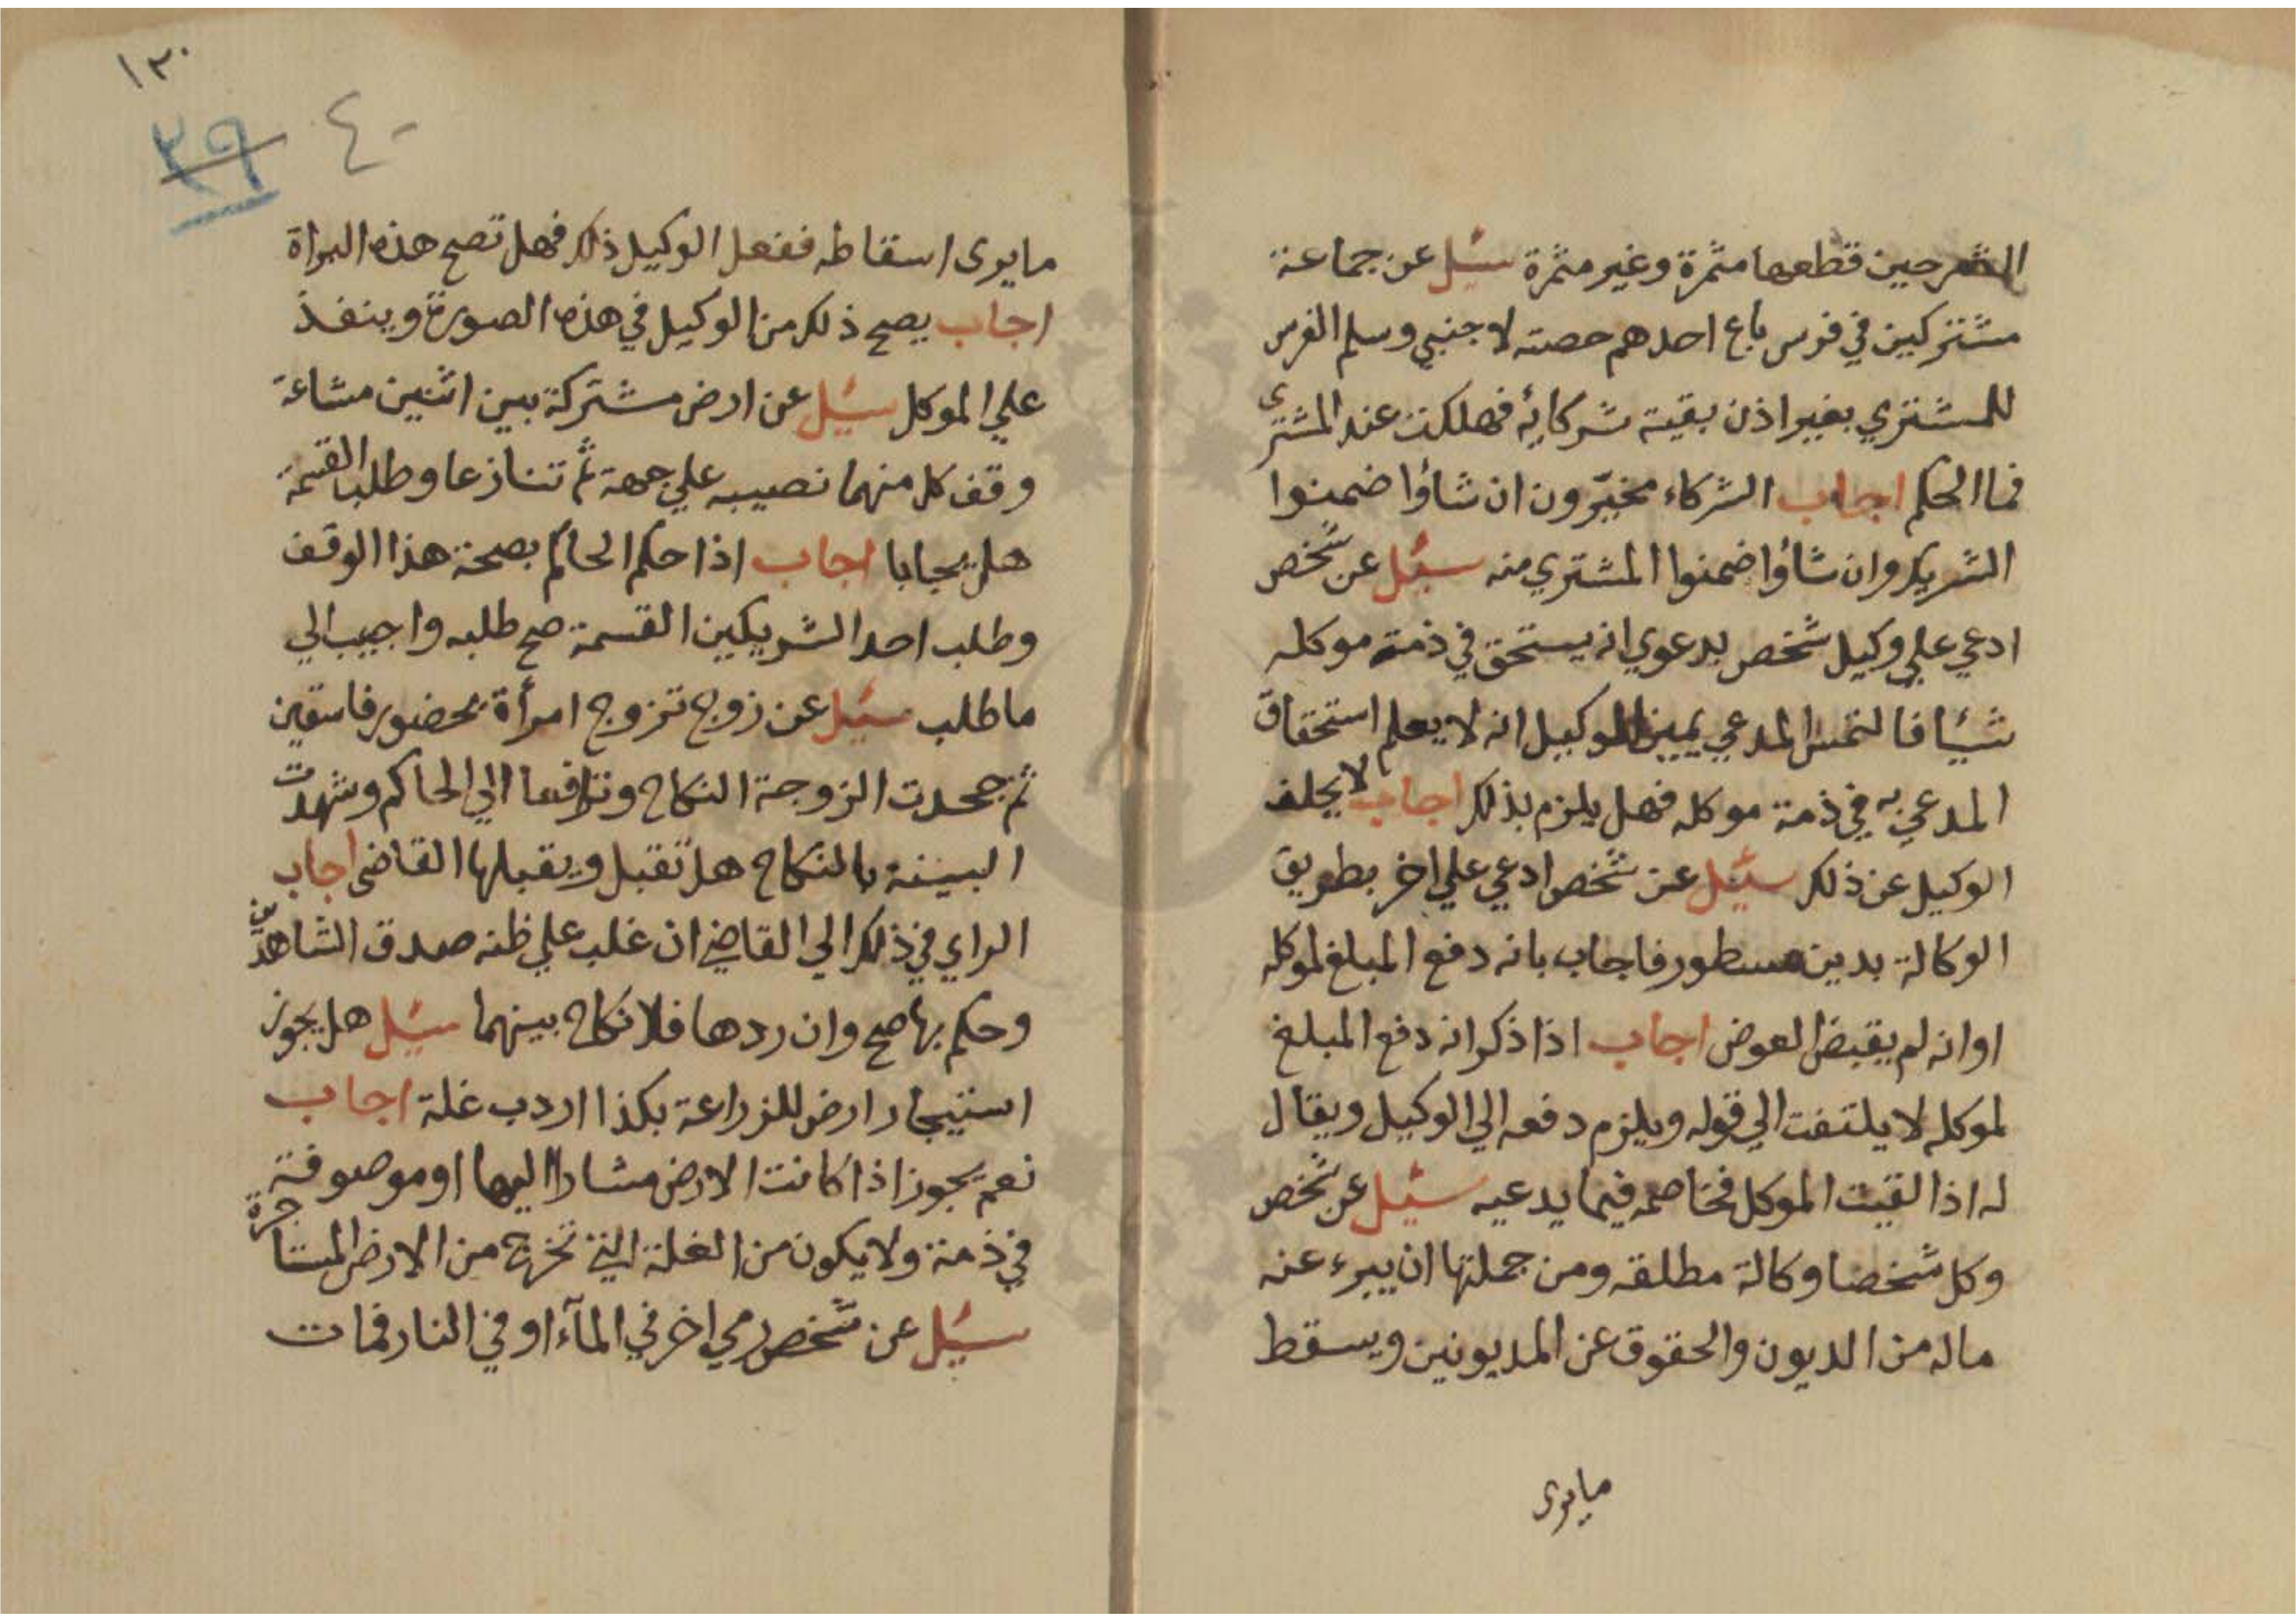 الثمر حين قطعها مثمرة وغير مثمرة سئل عن جماعة
مشتركين في فرس باع احدهم حصته لاجنبي وسلم الفرس
للمشتري بغير اذن بقية شركائه فهلكت عند المشتري
فما الحكم اجاب الشركاء مخيّرون ان شاؤا ضمنوا
الشريك وان شاؤا ضمنوا المشتري منه سئل عن شخص
ادعي علي وكيل شخص بدعوي انه يستحق في ذمة موكله
شيئا فالتمس المدعي يمين الوكيل انه لا يعلم استحقاق
المدعي به في ذمة موكله فهل يلزم بذلك اجاب لا يحلف
الوكيل عن ذلك سئل عن شخص ادعي علي اخر بطريق
الوكالة بدين مسطور فاجاب بانه دفع المبلغ لموكله
او انه لم يقبض العوض اجاب اذا ذكر انه دفع المبلغ
لموكله لا يلتفت الي قوله ويلزم دفعه الي الوكيل ويقال
له اذا لقيت الموكل فخاصمه فيما يدعيه سئل عن شخص
وكل شخصا وكالة مطلقه ومن جملتها ان يبرء عنه
ماله من الديون والحقوق عن المديونين ويسقط
مايرى
١٣٠
٣٩ ٤٠
مايرى اسقاطه ففعل الوكيل ذلك فهل تصح هذه البراة
اجاب يصح ذلك من الوكيل في هذه الصورة وينفذ
علي الموكل سئل عن ارض مشتركة بين اثنين مشاعة
وقف كل منهما نصيبه علي جهة ثم تنازعا وطلبا القسمة
هل يجابا اجاب اذا حكم الحاكم بصحة هذا الوقف
وطلب احد الشريكين القسمة صح طلبه واجيب الي
ما طلب سئل عن زوج تزوج امرأة بحضور فاسقين
ثم جحدت الزوجة النكاح وترافعا الي الحاكم وشهدت
البينة بالنكاح هل تقبل ويقبلها القاضي اجاب
الراي في ذلك الي القاضي ان غلب علي ظنه صدق الشاهدين
وحكم بها صح وان ردها فلا نكاح بينهما سئل هل يجوز
استيجار ارض للزراعة بكذا اردب غلة اجاب
نعم يجوز اذا كانت الارض مشارا اليها او موصوفة
في ذمة ولا يكون من الغلة التي تخرج من الارض المستأجرة
سئل عن شخص رمي اخر في المآء او في النار فمات